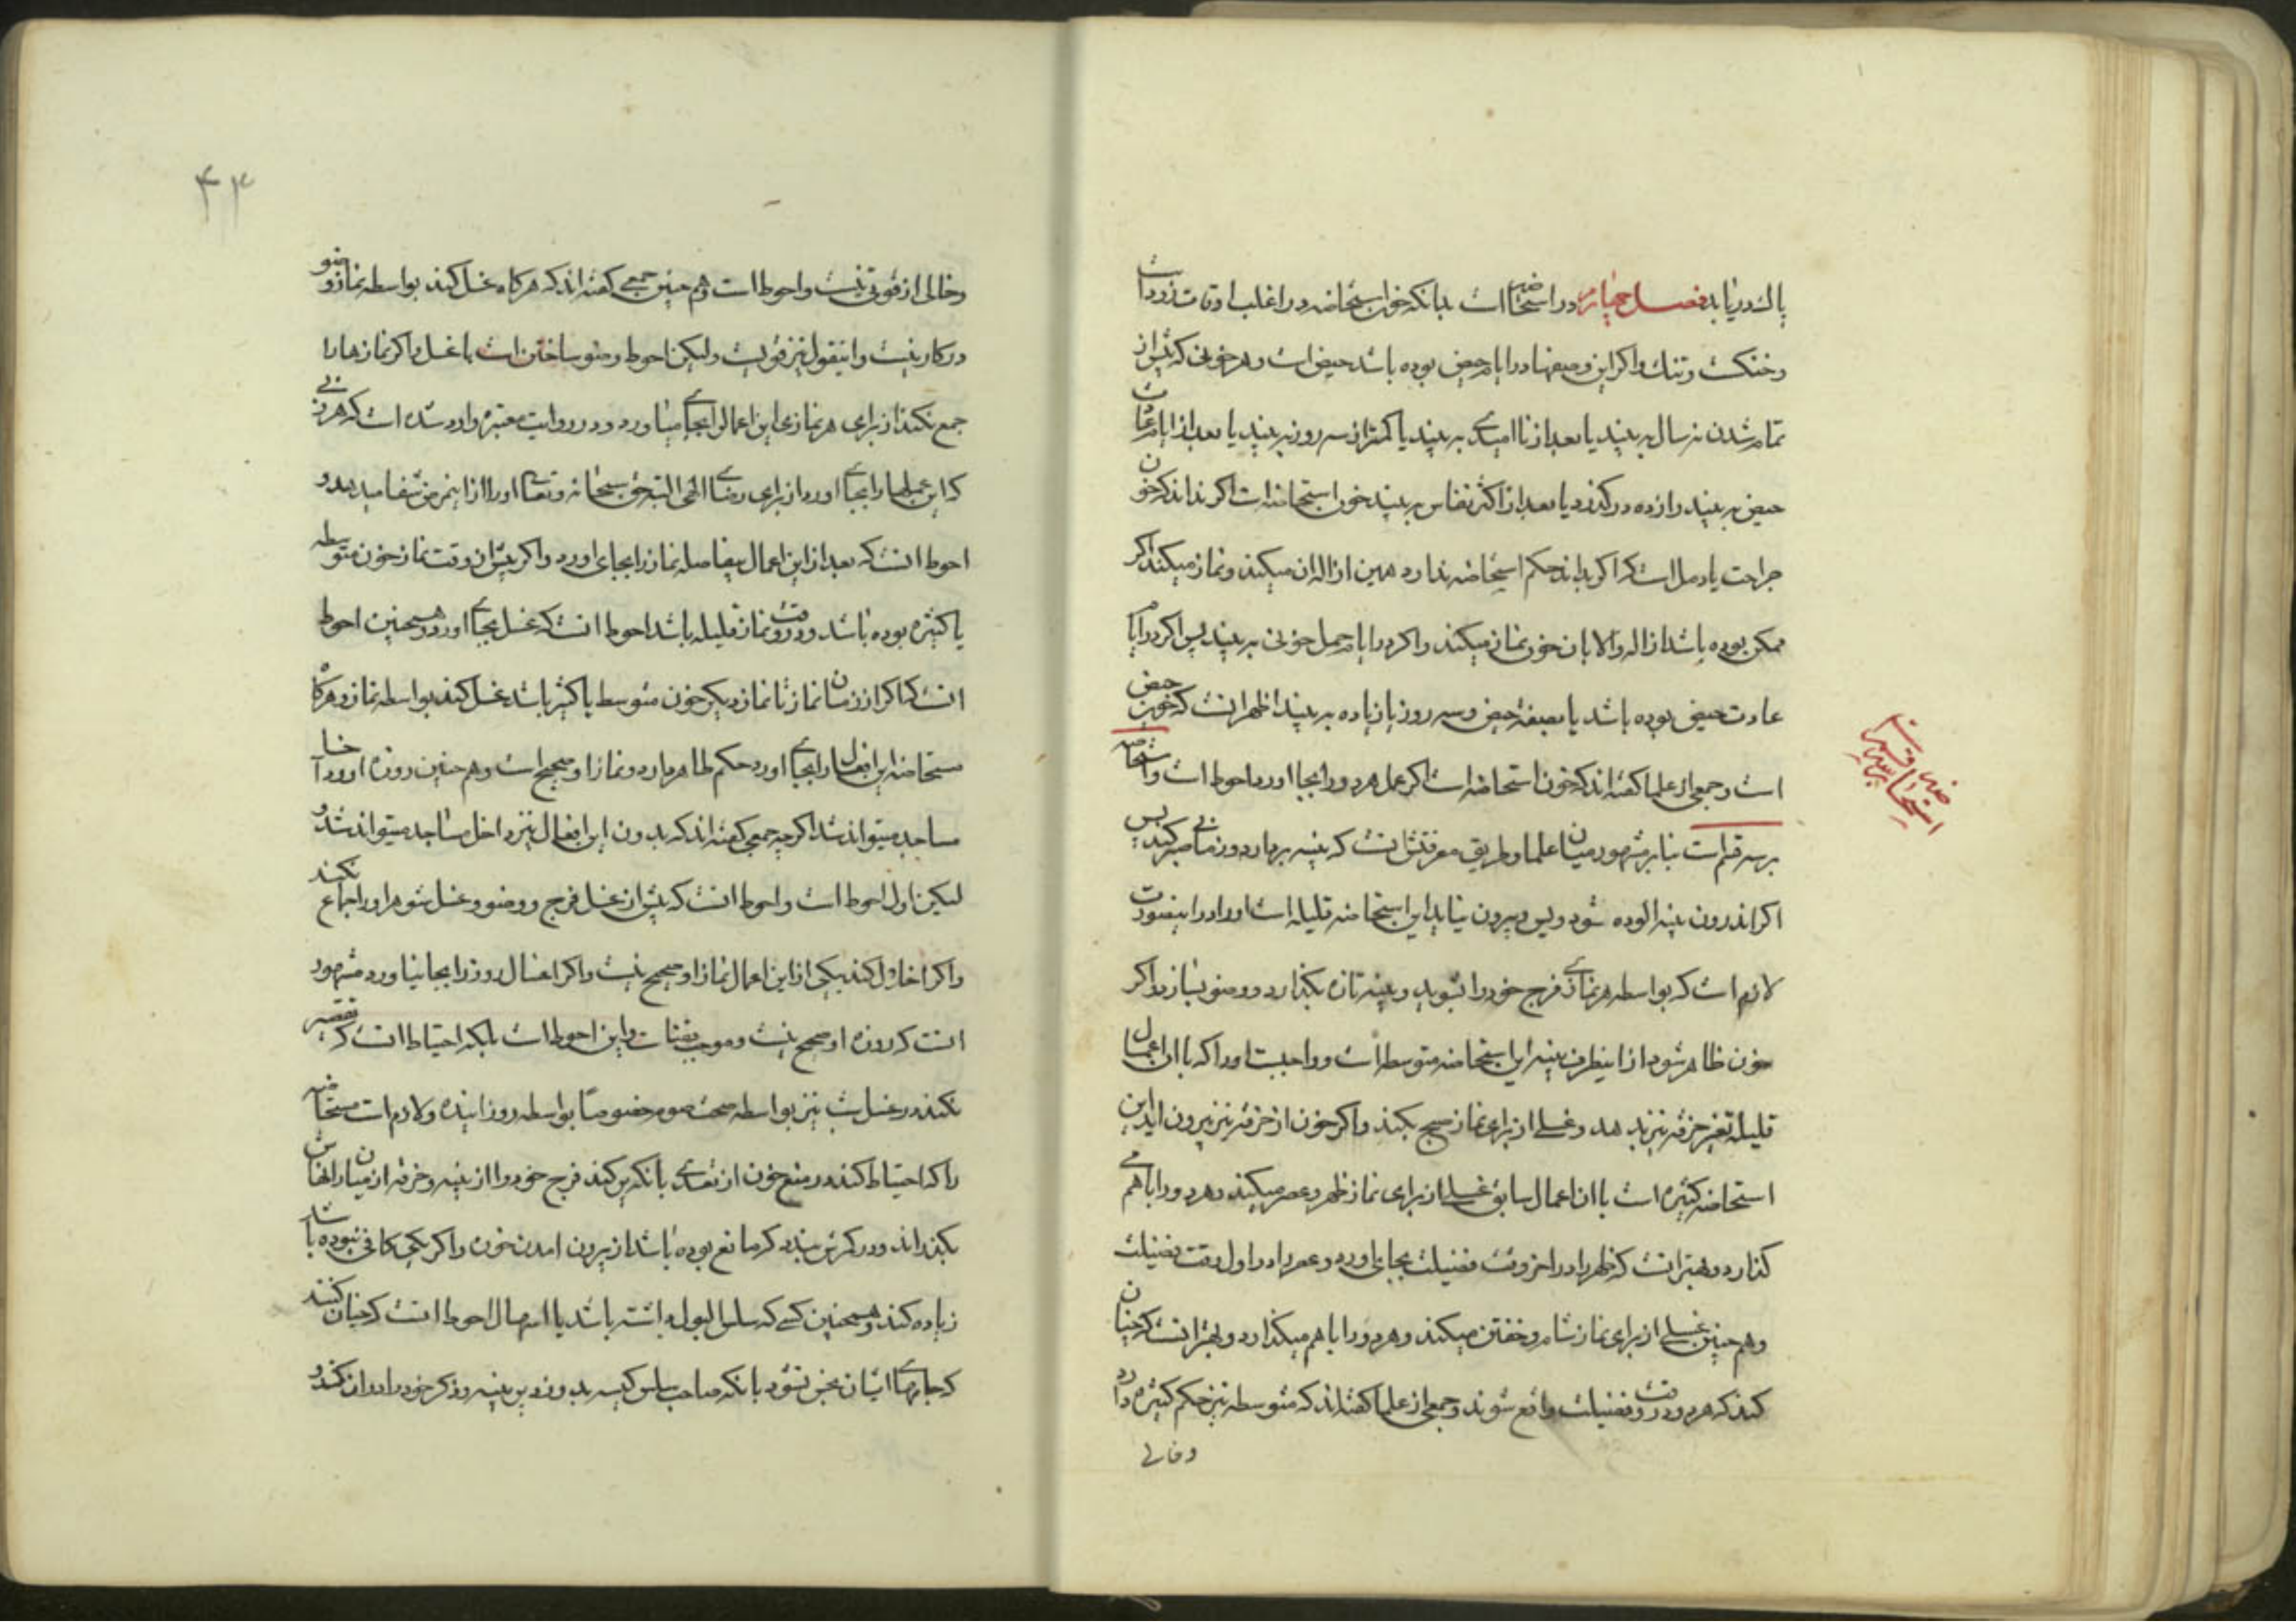 پاك دریابد فصل چهارم در استحاضه است بدانکه خون استحاضه در اغلب اوقات زرد است
و خنك و تنك و اکر این وصفها در ایام حیض بوده باشد حیض است و هر خونی که پیش از
تمام شدن نه سال به بیند یا بعد از ناامیدی به بیند یا کمتر از سه روز به بیند یا بعد از ایام عادت
حیض به بیند و از ده درکذرد یا بعد از اکثر نفاس به بیند خون استحاضه است اکر نداند که خون
جراحت یا دمل است که اکر بداند حکم استحاضه ندارد همین ازاله ان میکند و نماز میکند اکر
ممکن بوده باشد ازاله والا بان خون نماز میکند و اکر در ایام حمل خونی به بیند پس اکر در ایام
عادت حیض بوده باشد یا بصفة حیض و سه روز یا زیاده به بیند اظهر انست که خون حیض
است و جمعی از علما کفته اند که خون استحاضه است اکر عمل هر دو را بجا اورد احوط است و استحاضه
بر سه قسم است بنابر مشهور میان علما و طریق معرفتش انست که پنبه بردارد و زمانی صبر کند پس
اکر اندرون پنبه الوده شود و پس و بیرون نیاید این استحاضه قلیله است او را در اینصورت
لازم است که بواسطه هر نمازی فرج خود را بشوید و پنبه تازه بکذارد و وضو بسازد و اکر
خون ظاهر شود از اینطرف پنبه این استحاضه متوسطه است و واجبست او را که با ان اعمال
قلیله تغیر خرقه نیز بدهد و غسلی از برای نماز صبح بکند و اکر خون از خرقه نیز بیرون اید این
استحاضه کثیره است با ان اعمال سابق غسلی از برای نماز ظهر و عصر میکند و هر دو را با هم می
کذارد و بهتر انست که ظهر را در اخر وقت فضیلت بجای اورد و عصر را در اول وقت فضیلت
و هم چنین غسلی از برای نماز شام و خفتن میکند و هر دو را با هم میکذارد و بهتر انست که چنان
کند که هر دو در وقت فضیلت واقع شوند و جمعی از علما کفته اند که متوسطه نیز حکم کثیره دارد
وخالی
استحاضه
۴۳
و خالی از قوتی نیست و احوط است و هم چنین جمعی کفته اند که هرکاه غسل کند بواسطه نماز وضو
درکار نیست و اینقول نیز قویست ولیکن احوط وضو ساختن است با غسل و اکر نمازها را
جمع نکند از برای هر نمازی این اعمال را بجا میاورد و در روایت معتبره وارد شده است که هر زنی
که این عملها را بجا اورد از برای رضای الهی البته حق سبحانه و تعالی او را از اینمرض شفا میدهد و
احوط انست که بعد از این اعمال بیفاصله نماز را بجای اورد و اکر پیش از وقت نماز خون متوسطه
یا کثیره بوده باشد و در وقت نماز قلیله باشد احوط انست که غسل بجا اورد و همچنین احوط
انست که اکر از زمان نماز تا نماز دیکر خون متوسط یا کثیر باشد غسل کند بواسطه نماز و هرکاه
مستحاضه این افعال را بجا اورد حکم طاهر دارد و نماز او صحیح است و هم چنین روزه او و داخل
مساجد میتواند شد اکرچه جمعی کفته اند که بدون این افعال نیز داخل مساجد میتواند شد و
لیکن اول احوط است و احوط انست که پیش از غسل فرج و وضو و غسل شوهر او را جماع نکند
و اکر اخلال کند بیکی از این اعمال نماز او صحیح نیست و اکر اغسال روز را بجا نیاورد مشهور
انست که روزه او صحیح نیست و موجب قضا است و این احوط است بلکه احتیاط انست که تقصیر
نکند در غسل شب نیز بواسطه صحت صوم خصوصاً بواسطه روز اینده و لازم است مستحاضه
را که احتیاط کند در منع خون از تعدی بانکه پر کند فرج خود را از پنبه و خرقه از میان رانهاش
بکذراند و در کمرش بندد که مانع بوده باشد از بیرون امدن خون و اکر یکی کافی نبوده باشد
زیاده کند و همچنین کسی که سلس البول داشته باشد یا اسهال احوط انست که چنان کنند
که جامهای ایشان نجس نشود بانکه صاحب سلس کیسه بدوزد پر پنبه و ذکر خود را در ان کند و